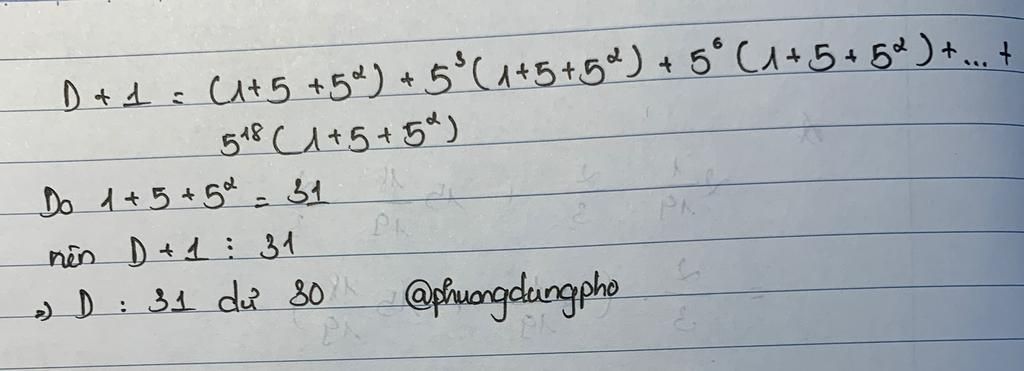 D + 1 = (1+5+5²) + 5³(1+5+5²) + 5⁶(1+5+5²)+...+
5¹⁸(1+5+5²)
Do 1+5+5² = 31
nên D + 1 ⋮ 31
⇒ D : 31 dư 30 @phuongdungpho